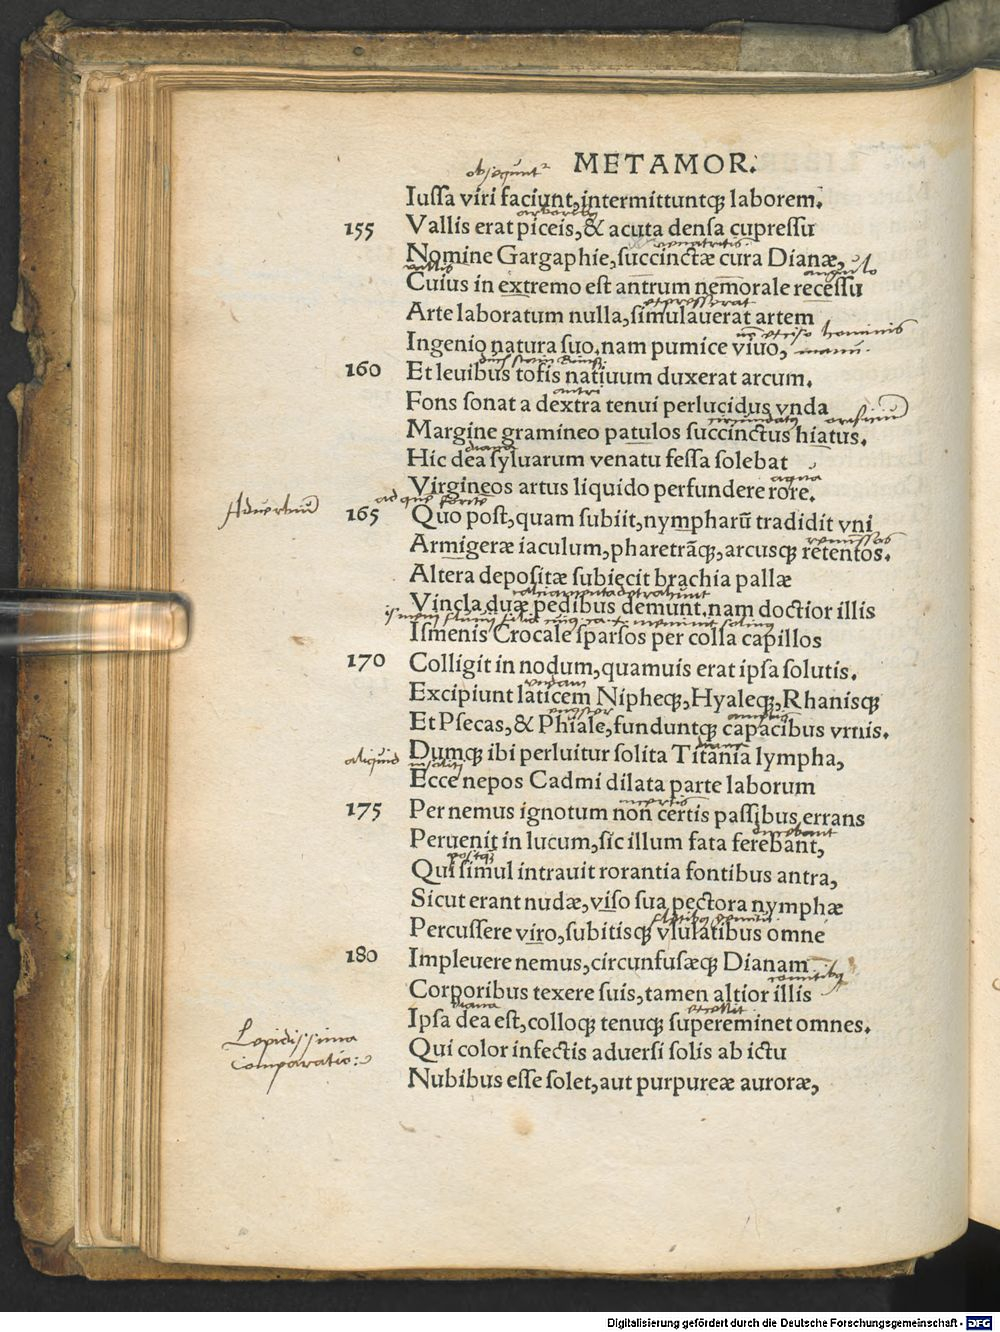 METAMOR.
obsequunt²
Iussa viri faciunt,intermittuntqꝫ laborem.
arboribꝫ
155 Vallis erat piceis,& acuta densa cupressu
venatricis.
Nomine Gargaphie,succinctæ cura Dianæ,
vallis angulo
Cuius in extremo est antrum nemorale recessu
expresserat
Arte laboratum nulla,simulauerat artem
hominis
Ingenio natura suo,nam pumice viuo, manu.
160 Et leuibus tofis natiuum duxerat arcum.
antri
Fons sonat a dextra tenui perlucidus vnda
circundatꝰ orificiū
Margine gramineo patulos succinctus hiatus.
diana
Hic dea syluarum venatu fessa solebat
aqua
Virgineos artus liquido perfundere rore.
Aduerbiū ad quē fontē
165 Quo post,quam subiit,nympharū tradidit vni
remissos
Armigeræ iaculum,pharetrāqꝫ,arcusqꝫ retentos.
Altera depositæ subiecit brachia pallæ
calciamenta detrahunt
Vincla duæ pedibus demunt.nam doctior illis
Ismenis Crocale sparsos per colla capillos
170 Colligit in nodum,quamuis erat ipsa solutis.
vndam
Excipiunt laticem Nipheqꝫ,Hyaleqꝫ,Rhanisqꝫ
amplis
Et Psecas,& Phiale,funduntqꝫ capacibus vrnis.
diana
Dumqꝫ ibi perluitur solita Titania lympha,
Ecce nepos Cadmi dilata parte laborum
incertis
175 Per nemus ignotum non certis passibus errans
ducebant
Peruenit in lucum,sic illum fata ferebant,
postqꝫ
Qui simul intrauit rorantia fontibus antra,
Sicut erant nudæ,viso sua pectora nymphæ
Percussere viro,subitisqꝫ vlulatibus omne
180 Impleuere nemus,circunfusæqꝫ Dianam
comitibꝫ
Corporibus texere suis,tamen altior illis
diana excellit
Ipsa dea est,colloqꝫ tenuqꝫ supereminet omnes.
Lepidissima
comparatio:
Qui color infectis aduersi solis ab ictu
Nubibus esse solet,aut purpureæ auroræ,
Digitalisierung gefördert durch die Deutsche Forschungsgemeinschaft - DFG